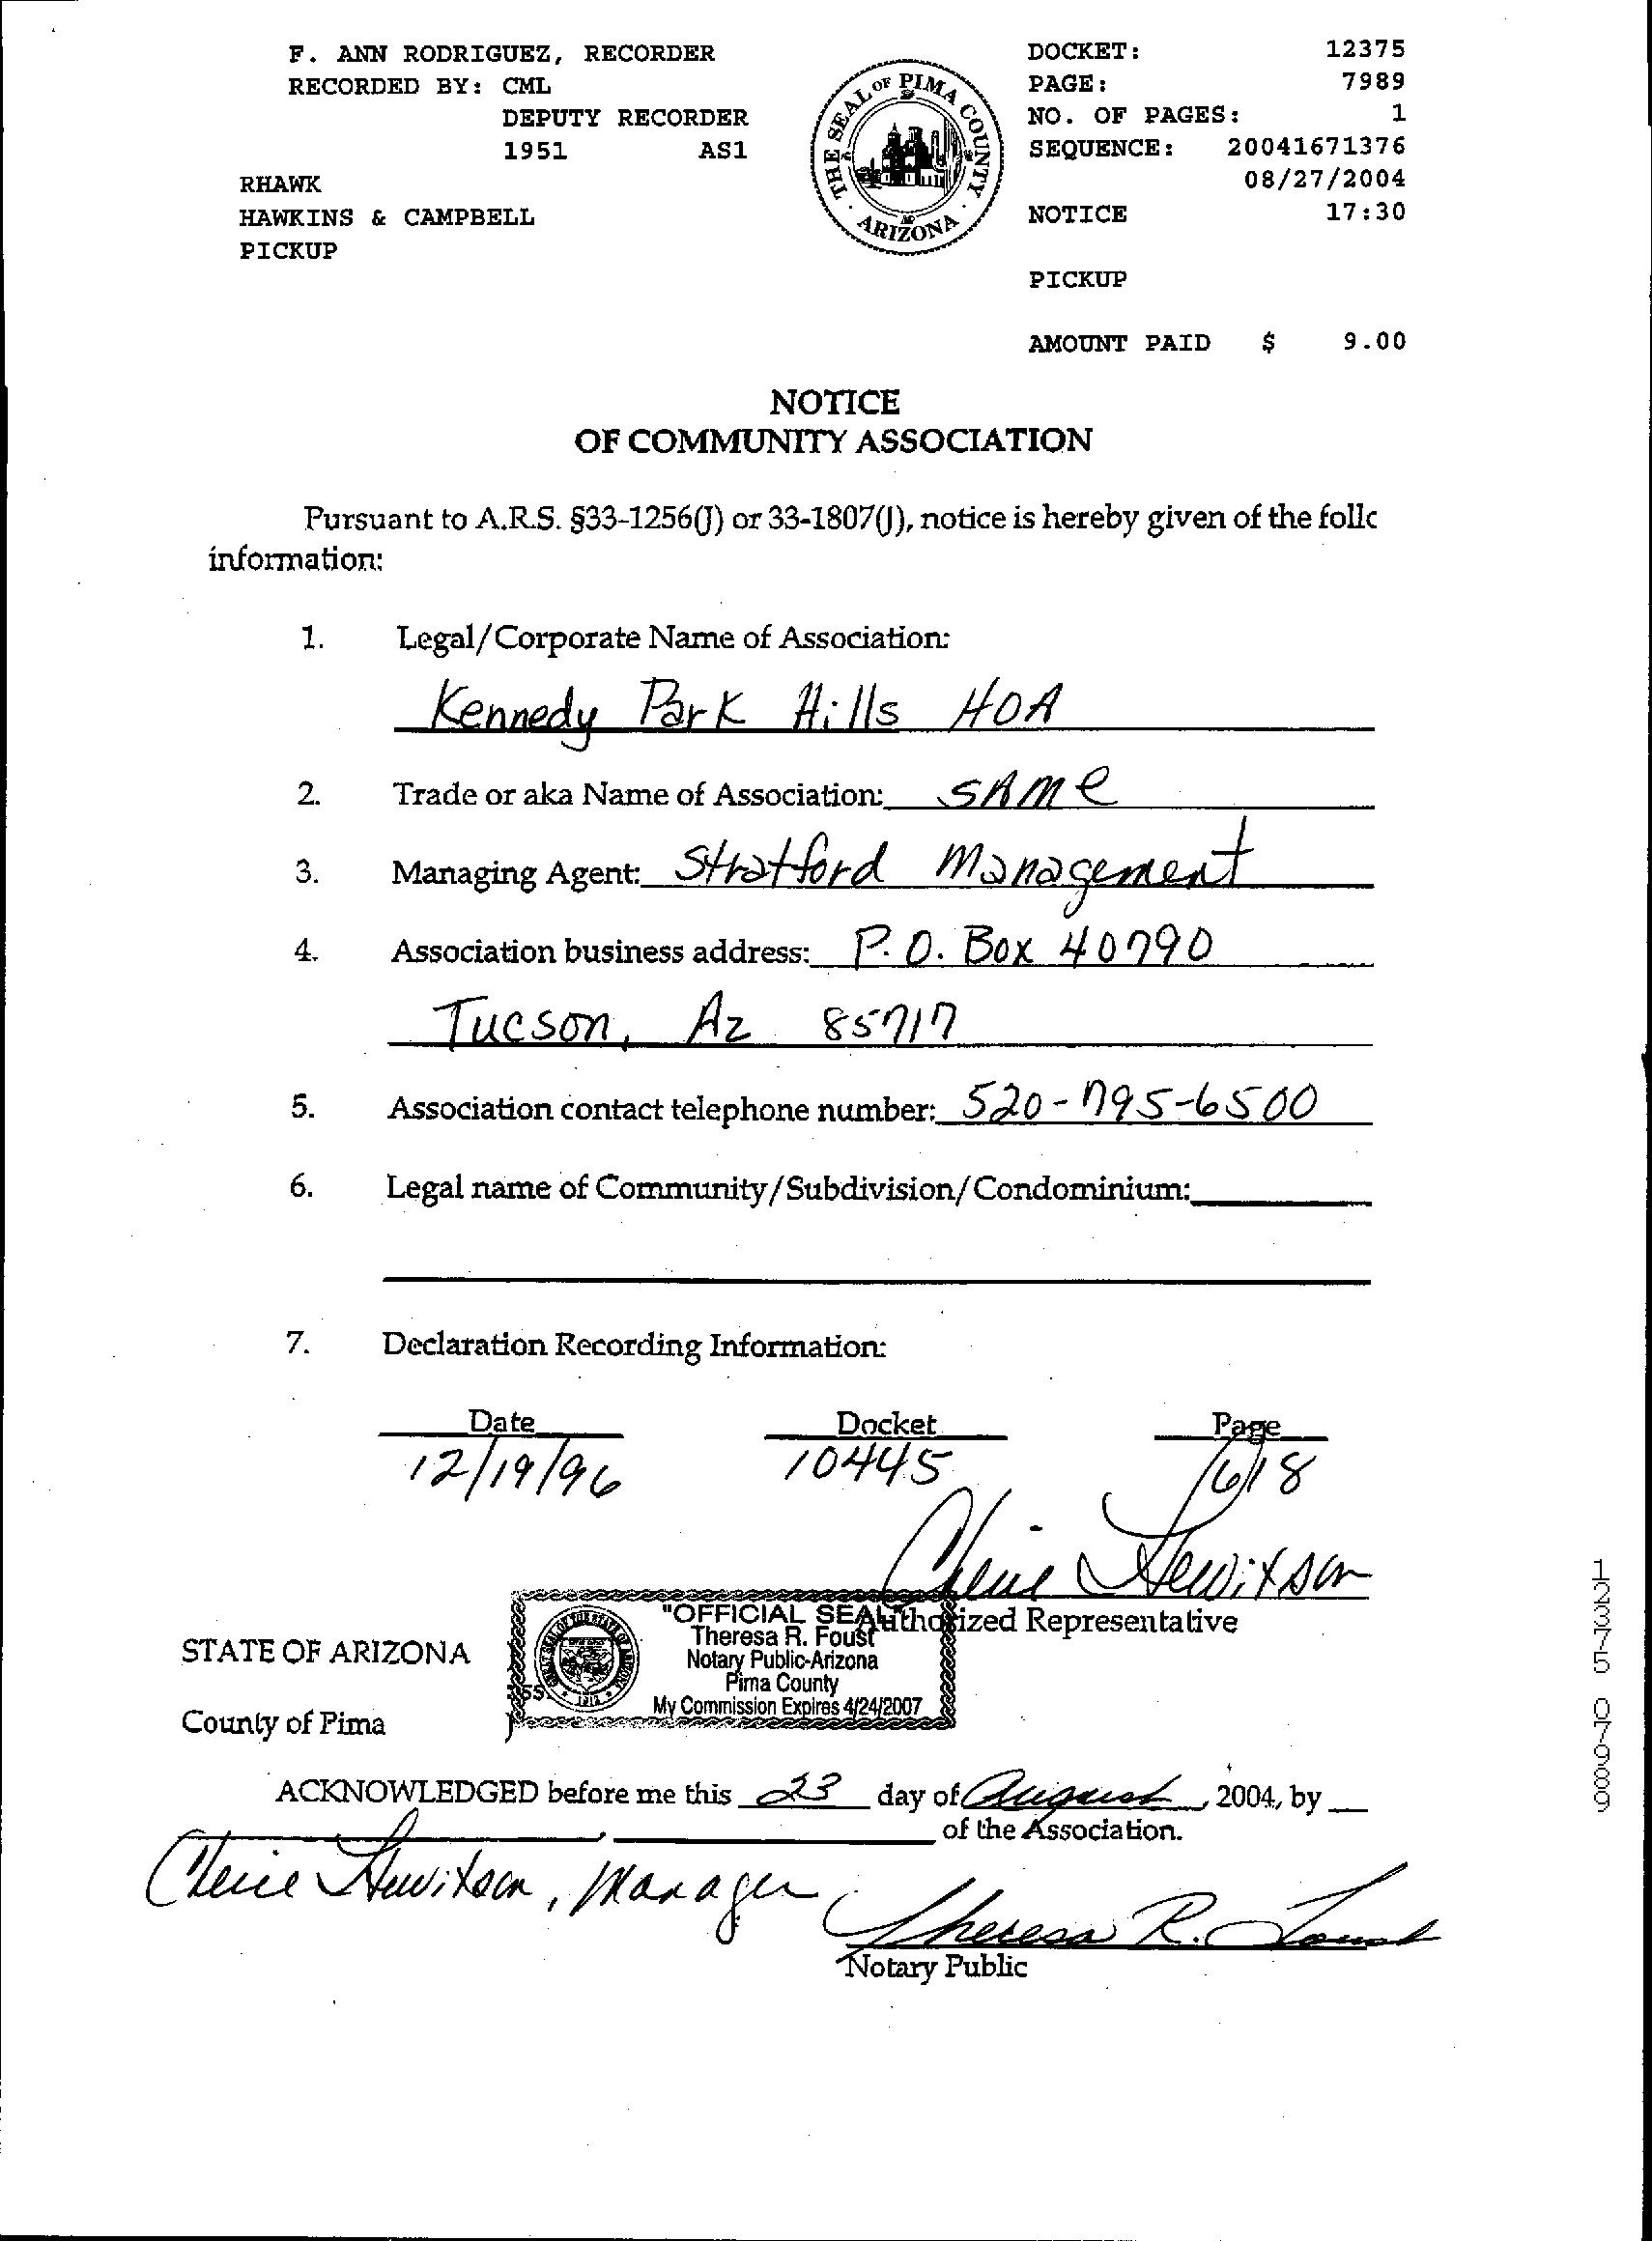 F. ANN RODRIGUEZ, RECORDER
RECORDED BY: CML
DEPUTY RECORDER
1951 AS1
RHAWK
HAWKINS & CAMPBELL
PICKUP
THE SEAL OF PIMA COUNTY
ARIZONA
DOCKET: 12375
PAGE: 7989
NO. OF PAGES: 1
SEQUENCE: 20041671376
08/27/2004
NOTICE 17:30
PICKUP
AMOUNT PAID $ 9.00
NOTICE
OF COMMUNITY ASSOCIATION
Pursuant to A.R.S. §33-1256(J) or 33-1807(J), notice is hereby given of the follc
information:
1. Legal/Corporate Name of Association:
Kennedy Park Hills HOA
2. Trade or aka Name of Association: SAMe
3. Managing Agent: Stratford Management
4. Association business address: P.O. Box 40790
Tucson, Az 85717
5. Association contact telephone number: 520-795-6500
6. Legal name of Community/Subdivision/Condominium:
7. Declaration Recording Information:
Date Docket Page
12/19/96 10445 1618
Hewitson
Authorized Representative
"OFFICIAL SEAL
Theresa R. Foust
Notary Public-Arizona
Pima County
My Commission Expires 4/24/2007
STATE OF ARIZONA
ss.
County of Pima
ACKNOWLEDGED before me this 23 day of August, 2004, by
of the Association.
Hewitson, Manager
Theresa R. Foust
Notary Public
12375 07989